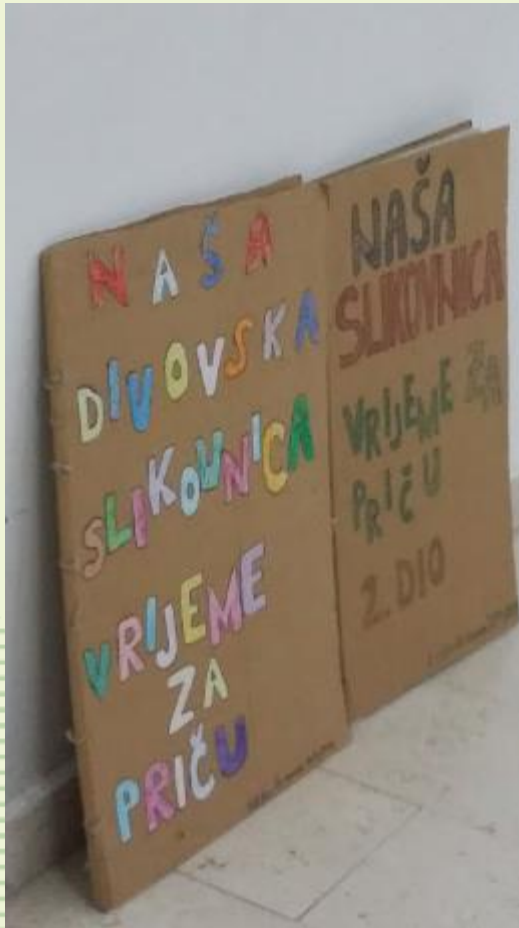 NAŠA
DIVOVSKA
SLIKOVNICA
VRIJEME
ZA
PRIČU
NAŠA
SLIKOVNICA
VRIJEME ZA
PRIČU
2. DIO